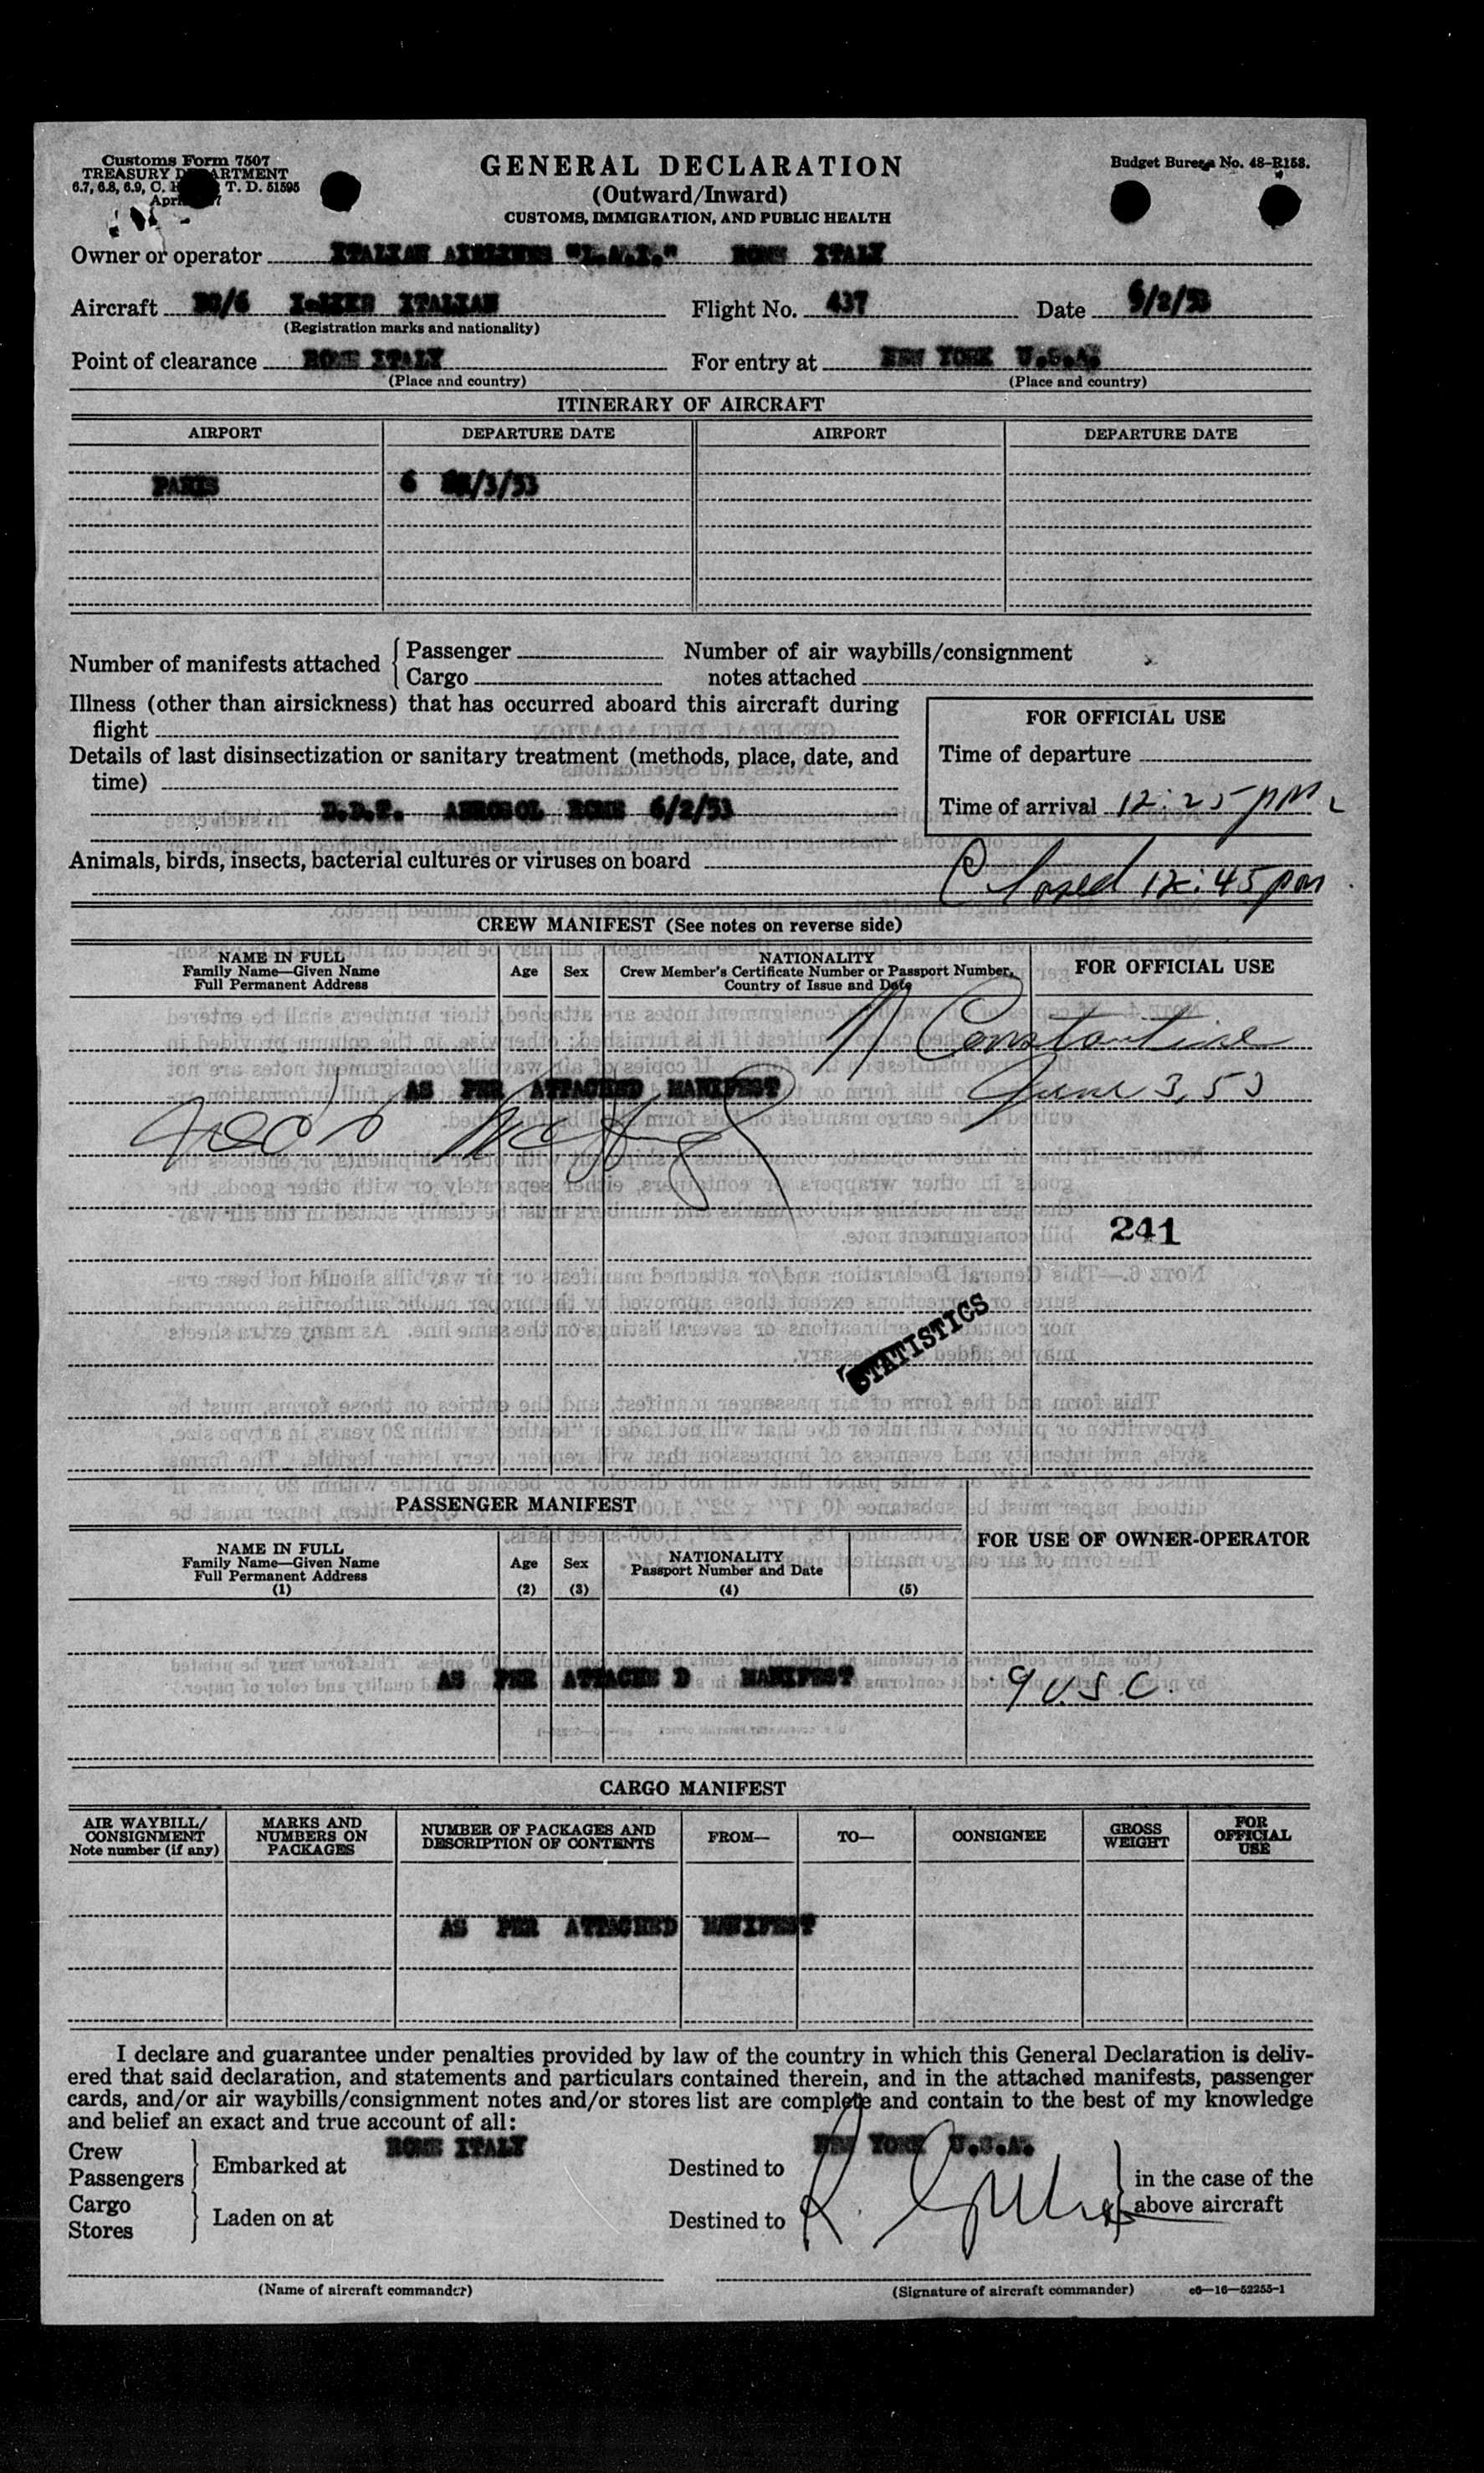 Customs Form 7507
TREASURY DEPARTMENT
6.7, 6.8, 6.9, C. T. D. 51595
GENERAL DECLARATION
(Outward/Inward)
CUSTOMS, IMMIGRATION, AND PUBLIC HEALTH
Budget Bureau No. 48-R158.
Owner or operator ITALIAN AIRLINES "L.A.I." ROME ITALY
Aircraft DC/6 ITALIAN Flight No. 437 Date 6/2/53
(Registration marks and nationality)
Point of clearance ROME ITALY For entry at NEW YORK U.S.A.
(Place and country) (Place and country)
ITINERARY OF AIRCRAFT
AIRPORT DEPARTURE DATE AIRPORT DEPARTURE DATE
PARIS 6 /3/53
Number of manifests attached Passenger Number of air waybills/consignment
Cargo notes attached
Illness (other than airsickness) that has occurred aboard this aircraft during
flight
Details of last disinsectization or sanitary treatment (methods, place, date, and
time)
D.D.T. AEROSOL ROME 6/2/53
FOR OFFICIAL USE
Time of departure
Time of arrival 12:25 pm
Animals, birds, insects, bacterial cultures or viruses on board
Closed 12:45 pm
CREW MANIFEST (See notes on reverse side)
NAME IN FULL
Family Name—Given Name
Full Permanent Address
Age Sex
NATIONALITY
Crew Member's Certificate Number or Passport Number,
Country of Issue and Date
FOR OFFICIAL USE
Constantine
AS PER ATTACHED MANIFEST
June 3, 53
241
STATISTICS
PASSENGER MANIFEST
NAME IN FULL
Family Name—Given Name
Full Permanent Address
(1)
Age
(2)
Sex
(3)
NATIONALITY
Passport Number and Date
(4) (5)
FOR USE OF OWNER-OPERATOR
AS PER ATTACHE D MANIFEST
9 U.S.C.
CARGO MANIFEST
AIR WAYBILL/
CONSIGNMENT
Note number (if any)
MARKS AND
NUMBERS ON
PACKAGES
NUMBER OF PACKAGES AND
DESCRIPTION OF CONTENTS
FROM—
TO—
CONSIGNEE
GROSS
WEIGHT
FOR
OFFICIAL
USE
AS PER ATTACHED MANIFEST
I declare and guarantee under penalties provided by law of the country in which this General Declaration is deliv-
ered that said declaration, and statements and particulars contained therein, and in the attached manifests, passenger
cards, and/or air waybills/consignment notes and/or stores list are complete and contain to the best of my knowledge
and belief an exact and true account of all:
Crew
Passengers
Embarked at ROME ITALY Destined to NEW YORK U.S.A.
Cargo
Stores
Laden on at Destined to
in the case of the
above aircraft
(Name of aircraft commander) (Signature of aircraft commander) c6—16—52255-1